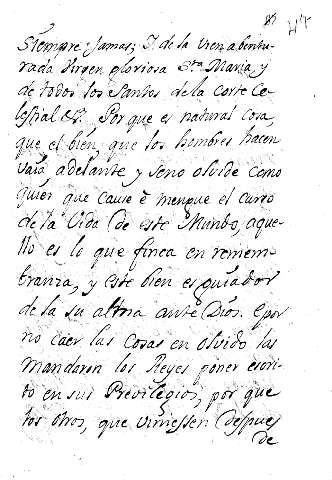 85 47
Siempre Jamas; I. de la vien abentu-
rada Virgen gloriosa Sta. Maria, y
de todos los Santos de la Corte Ce-
lestial &a. Porque es natural cosa,
que el bien, que los hombres hacen
vaia adelante, y se no olvide como
quier que canse è mengue el curso
de la Vida de este Mundo, aque-
llo es lo que finca en remem-
branza, y este bien es guiador
de la su alma ante Dios. E por
no caer las Cosas en olvido las
mandaron los Reyes poner escri-
to en sus Previlegios, por que
los otros, que viniessen despues
de